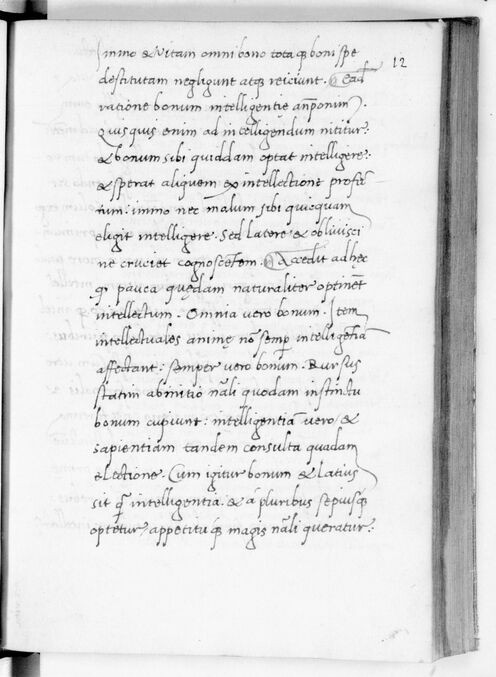 12
Immo & vitam omni bono tota qꝫ boni spe
destitutam negligunt atqꝫ reiciunt. Eadē
ratione bonum intelligentię anponunt.
Quisquis enim ad intelligendum nititur.
& bonum sibi quiddam optat intelligere.
& sperat aliquem ex intellectione profec
tum: immo nec malum sibi quicquam
eligit intelligere. Sed latere & oblivisci
ne cruciet cognoscētem. Accedit ad hęc
qꝫ pauca quędam naturaliter optinēt
intellectum. Omnia vero bonum. Item
intellectuales animę nō semp intelligentiā
affectant: semper vero bonum. Rursus
statim ab initio nāli quodam instinctu
bonum cupiunt: intelligentiā vero, &
sapientiam tandem consulta quadam
electione. Cum igitur bonum & latius
sit qꝫ intelligentia. & a pluribus sepiusqꝫ
optetur, appetitu qꝫ magis nāli queratur.